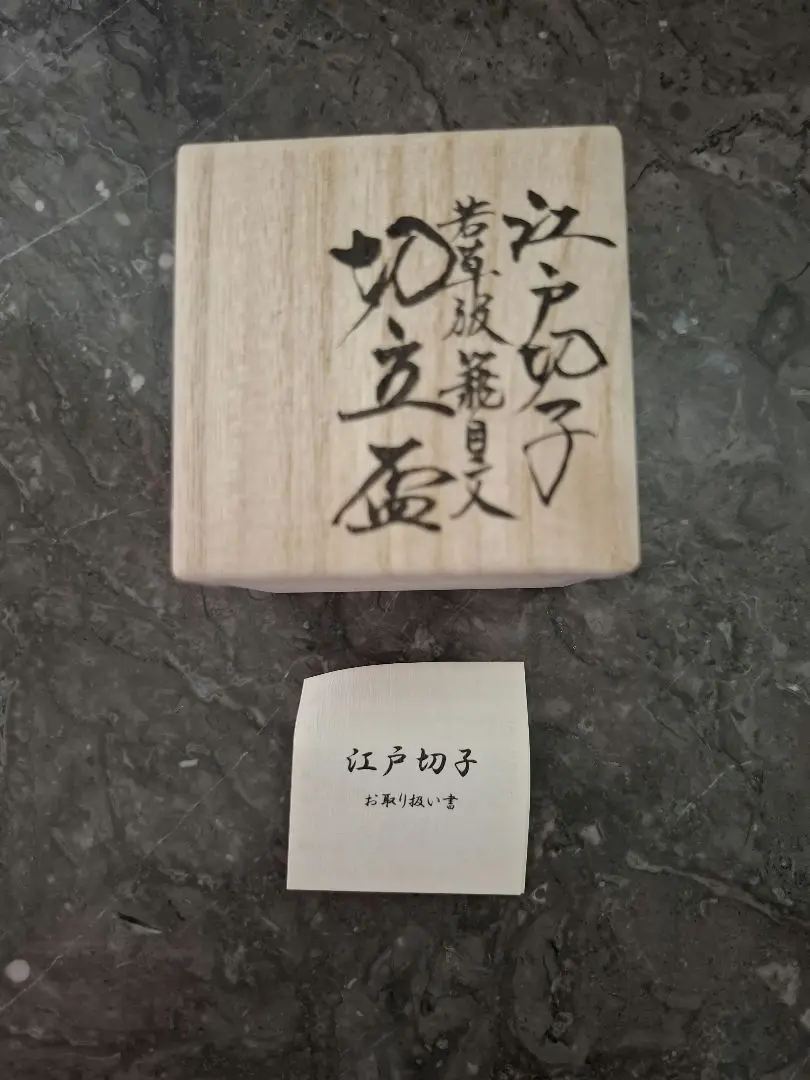 江戸切子
若草被籠目文
切立盃
江戸切子
お取り扱い書